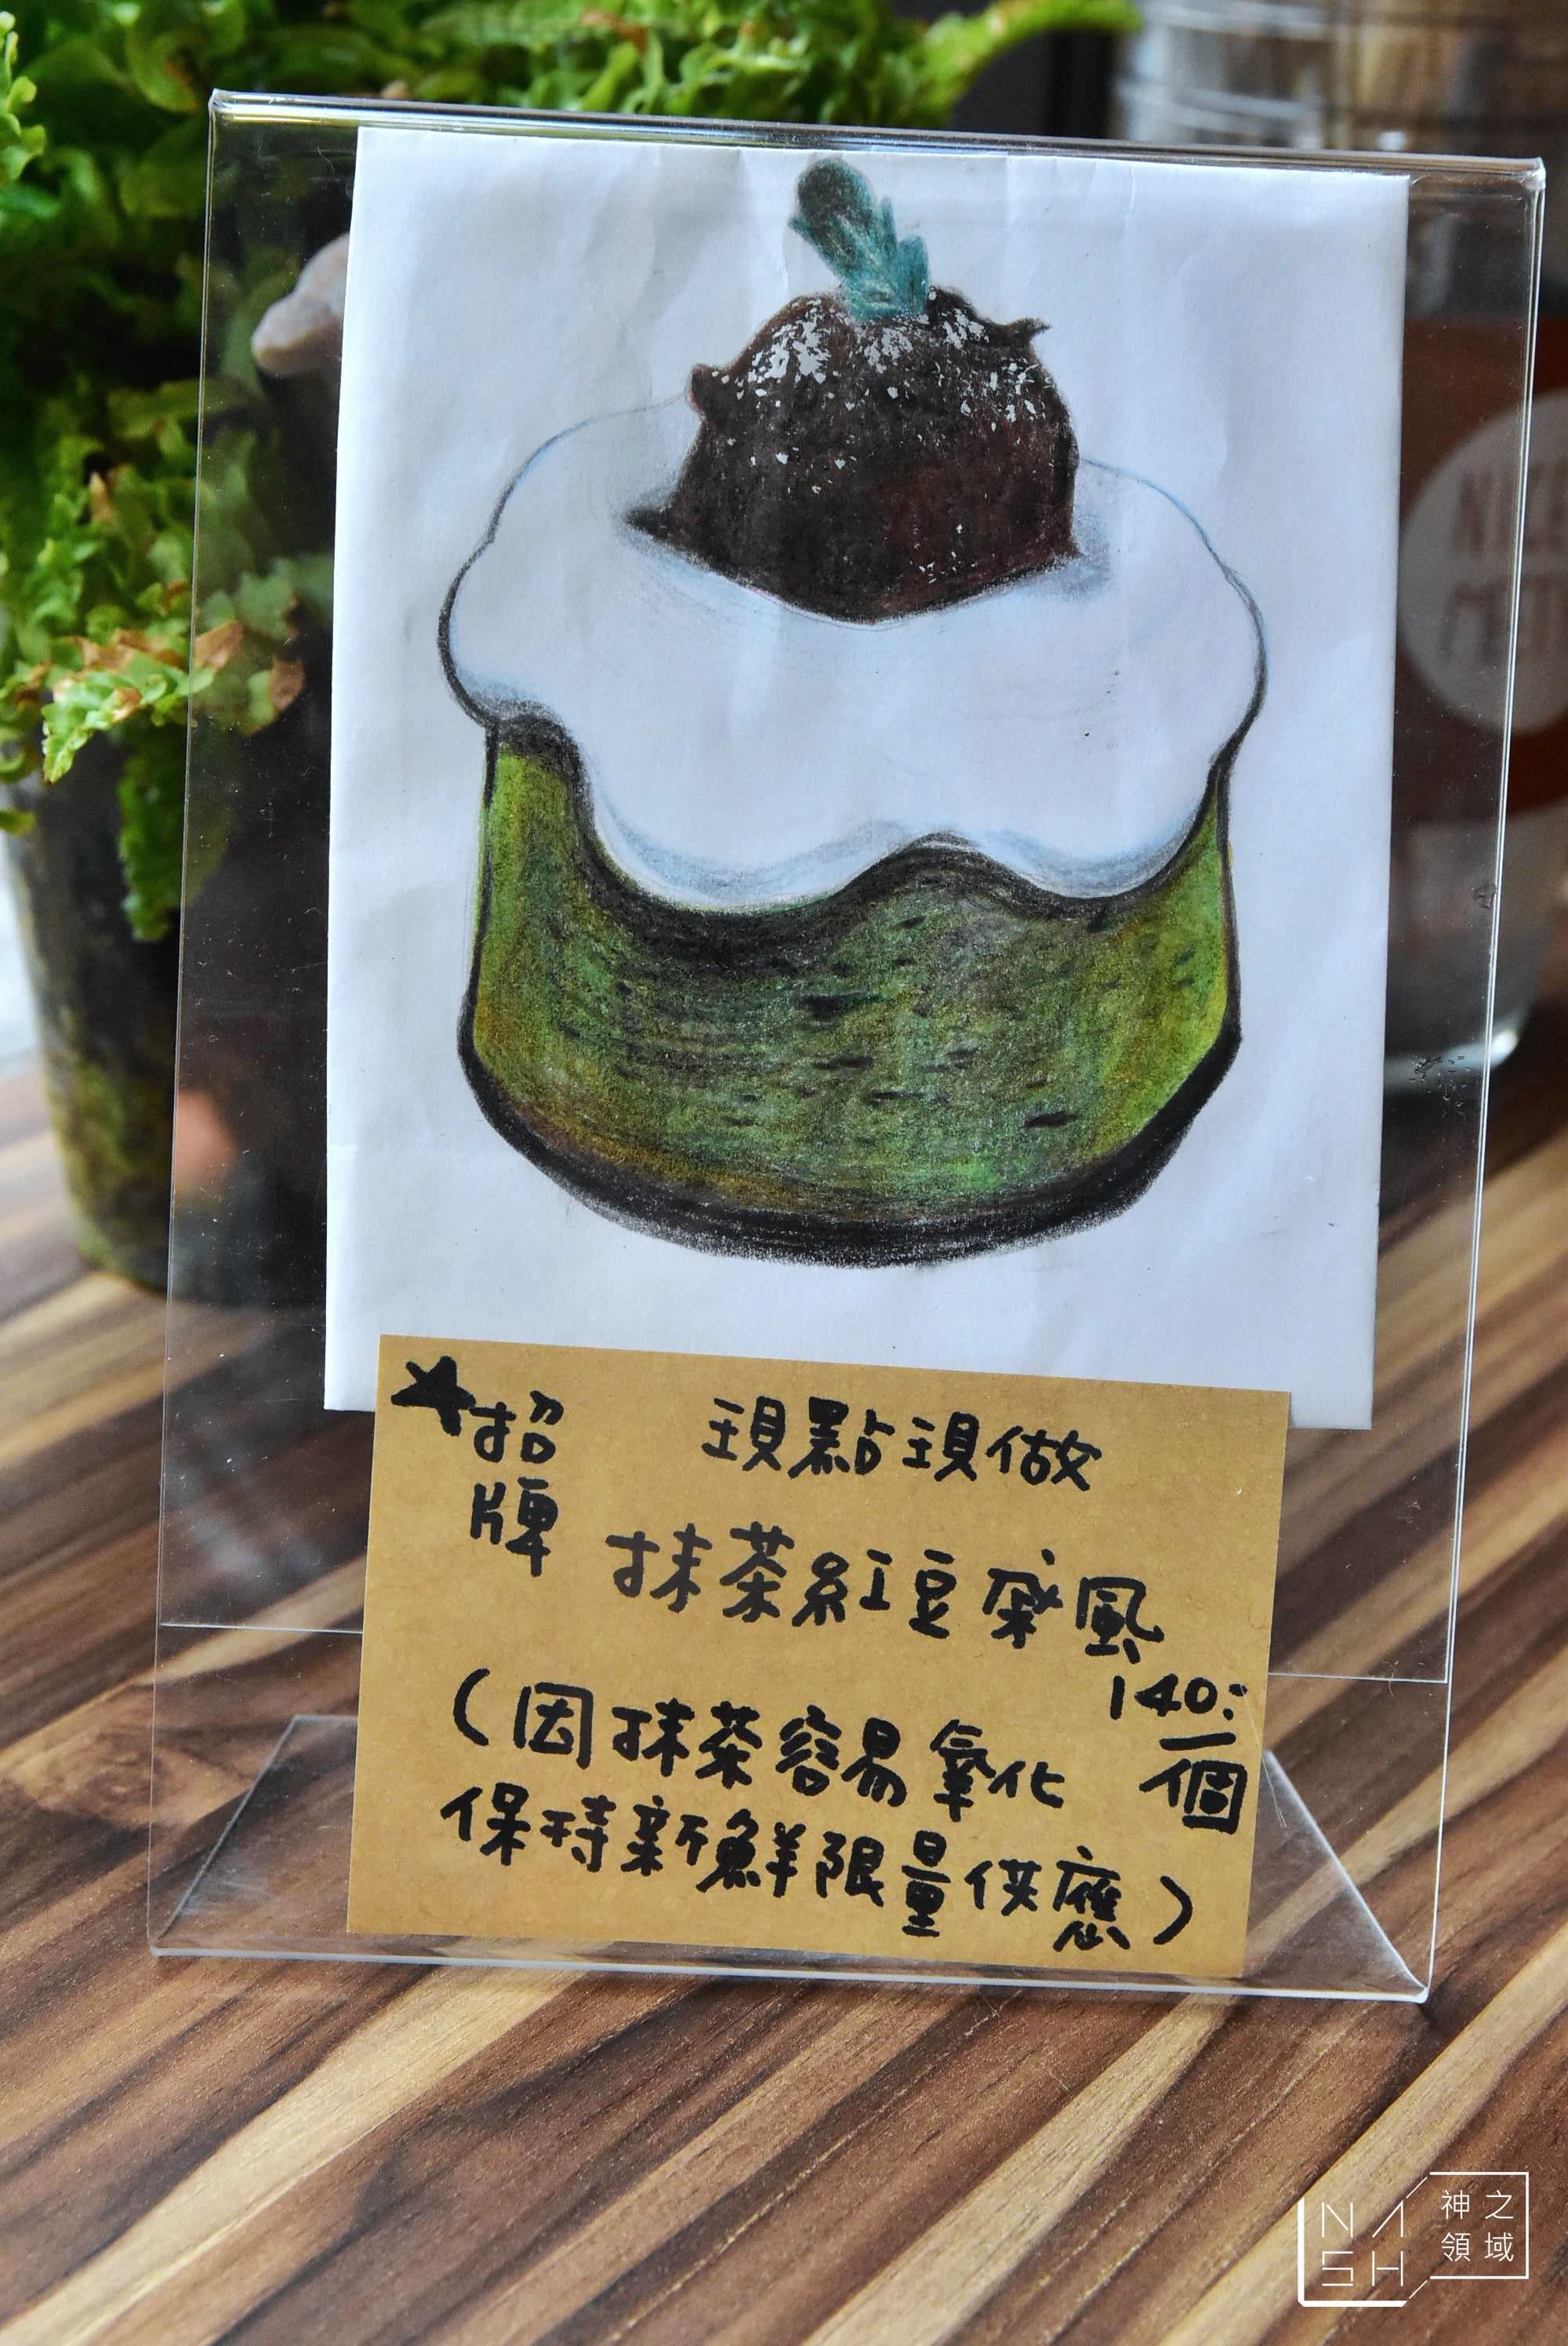 ★招牌
現點現做
抹茶紅豆戚風
140.-
一個
(因抹茶容易氧化
保持新鮮限量供應)
NASH
神之領域